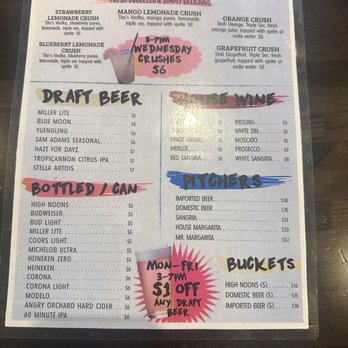 FRESH SQUEEZED & SIMPLY DELICIOUS.
STRAWBERRY
LEMONADE CRUSH
Tito's Vodka, strawberry puree,
lemonade, triple sec, topped with
sprite $8
BLUEBERRY LEMONADE
CRUSH
Tito's Vodka, blueberry puree,
lemonade, triple sec, topped with
sprite $8
MANGO LEMONADE CRUSH
Tito's Vodka, mango puree, lemonade,
triple sec, topped with sprite $8
3-7PM
WEDNESDAY
CRUSHES
$6
ORANGE CRUSH
Stoli Orange, Triple Sec, fresh
orange juice, topped with sprite or
soda water $8
GRAPEFRUIT CRUSH
Stoli Grapefruit, Triple Sec, fresh
topped with sprite or
soda water $8
DRAFT BEER
MILLER LITE $5
BLUE MOON $6
YUENGLING $5
SAM ADAMS SEASONAL $6
HAZE FOR DAYZ $7
TROPICANNON CITRUS IPA $7
STELLA ARTOIS $7
HOUSE WINE
PINOT GRIGIO
MERLOT
RED SANGRIA $8
RIESLING
WHITE ZIN
MOSCATO
PROSECCO
WHITE SANGRIA $8
BOTTLED / CAN
HIGH NOONS
BUDWEISER $5
BUD LIGHT $5
MILLER LITE $5
COORS LIGHT $5
MICHELOB ULTRA $5
HEINEKEN ZERO
HEINEKEN
CORONA
CORONA LIGHT
MODELO
ANGRY ORCHARD HARD CIDER $6
60 MINUTE IPA
PITCHERS
IMPORTED BEER $18
DOMESTIC BEER $15
SANGRIA $21
HOUSE MARGARITA $30
MR. MARGARITA $32
MON-FRI
3-7PM
$1 OFF
ANY DRAFT
BEER
BUCKETS
HIGH NOONS (5) $16
DOMESTIC BEER (5) $15
IMPORTED BEER (5) $18